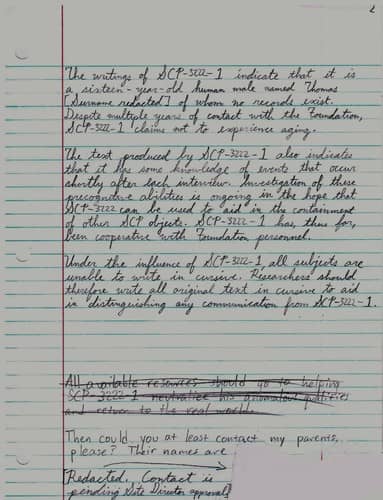 2
The writings of SCP-3222-1 indicate that it is
a sixteen-year-old human male named Thomas
[Surname redacted] of whom no records exist.
Despite multiple years of contact with the Foundation,
SCP-3222-1 claims not to experience aging.
The text produced by SCP-3222-1 also indicates
that it has some knowledge of events that occur
shortly after each interview. Investigation of these
precognitive abilities is ongoing in the hope that
SCP-3222 can be used to aid in the containment
of other SCP objects. SCP-3222-1 has, thus far,
been cooperative with Foundation personnel.
Under the influence of SCP-3222-1 all subjects are
unable to write in cursive. Researchers should
therefore write all original text in cursive to aid
in distinguishing any communication from SCP-3222-1.
All available resources should go to helping
SCP-3222-1 neutralize his anomalous qualities
and return to the real world.
Then could you at least contact my parents,
please? Their names are
[Redacted. Contact is
pending Site Director approval]